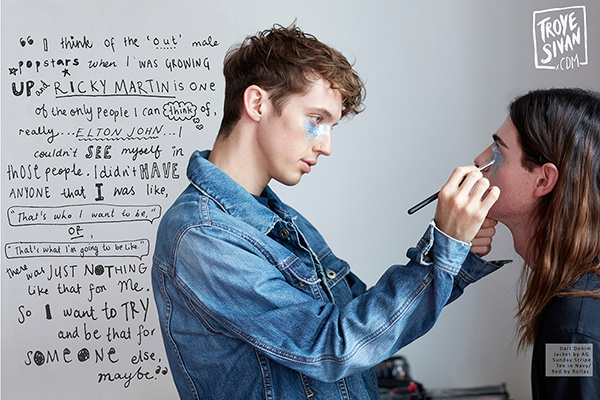 “ I think of the 'out' male
popstars when I was GROWING
UP and RICKY MARTIN is one
of the only people I can think of,
really... ELTON JOHN... I
couldn't SEE myself in
those people. I didn't HAVE
ANYONE that I was like,
"That's who I want to be,"
or,
"That's what I'm going to be like."
There was JUST NOTHING
like that for me.
So I want to TRY
and be that for
SOMEONE else,
maybe.”
TROYE
SIVAN
x CDM
Dart Denim
Jacket by AG,
Sunday Stripe
Tee in Navy/
Red by Rollas.